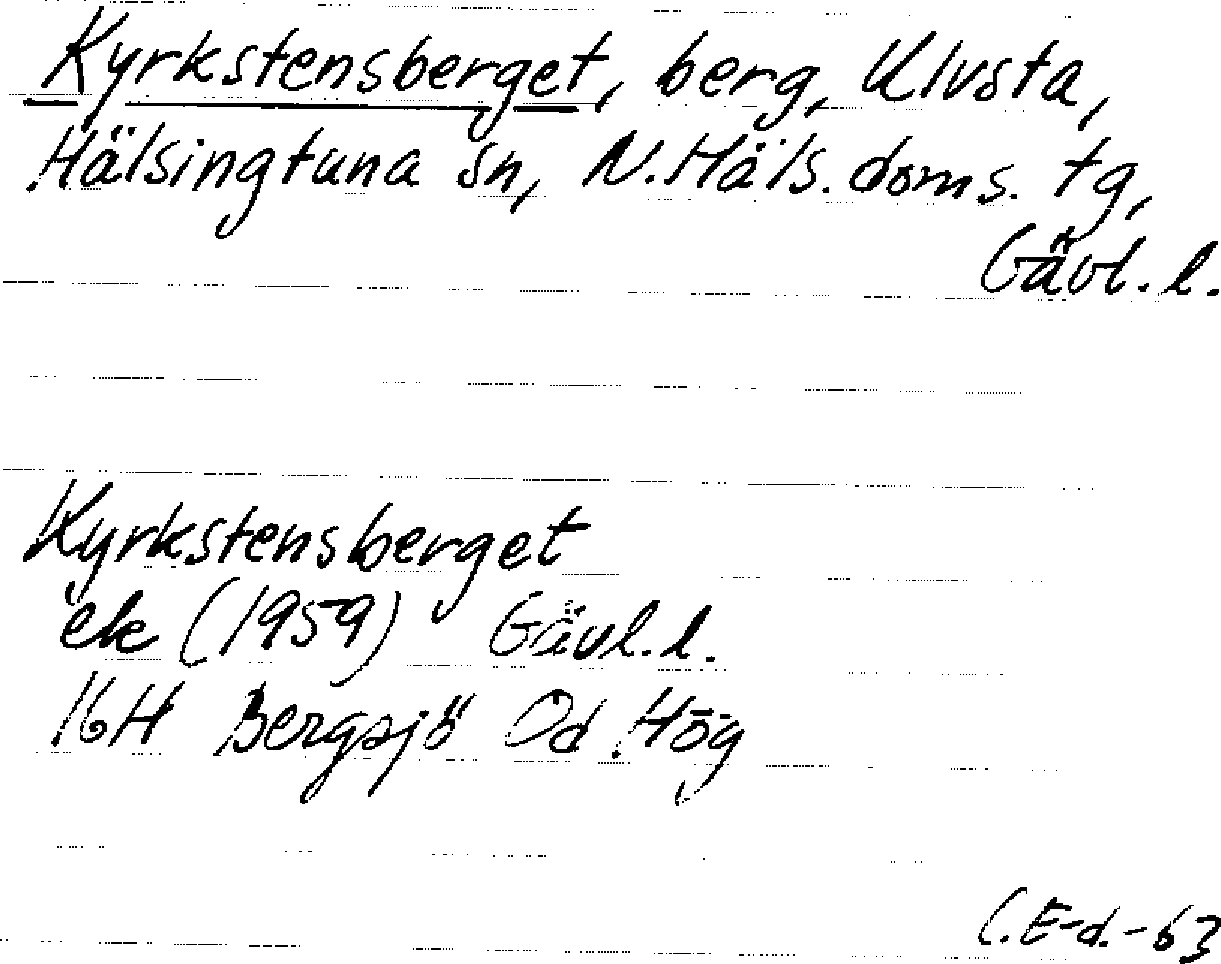 Kyrkstensberget, berg, Ulvsta,
Hälsingtuna sn, N.Häls. doms. tg,
Gävl. l.
Kyrkstensberget
ek (1959) Gävl. l.
16H Bergsjö Od Hög
C.E-d.-63